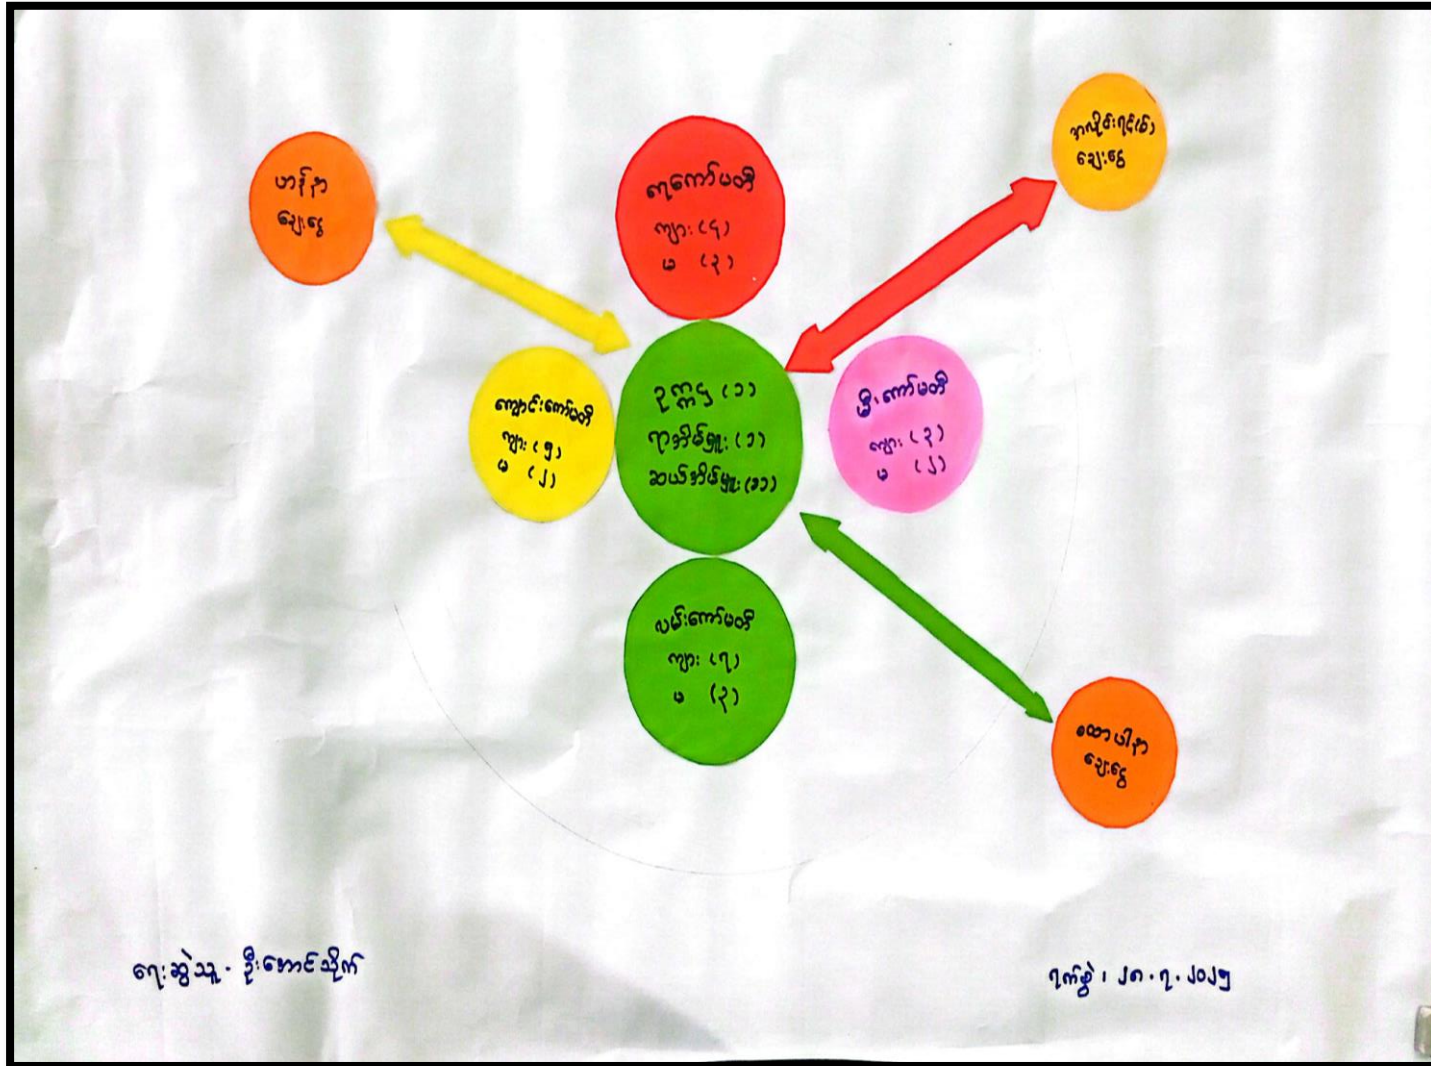 ဟန်နာ
ချေးငွေ
ရေကော်မတီ
ကျား (၄)
မ (၃)
အလှိုင်းရင့်(စ်)
ချေးငွေ
ကျောင်းကော်မတီ
ကျား (၅)
မ (၂)
ဥက္ကဋ္ဌ (၁)
ရာအိမ်မှူး (၁)
ဆယ်အိမ်မှူး (၁၁)
မီးကော်မတီ
ကျား (၃)
မ (၂)
လမ်းကော်မတီ
ကျား (၇)
မ (၃)
စထာပါနာ
ချေးငွေ
ရေးဆွဲသူ - ဦးအောင်သိုက်
ရက်စွဲ ၊ ၂၈.၇.၂၀၂၅